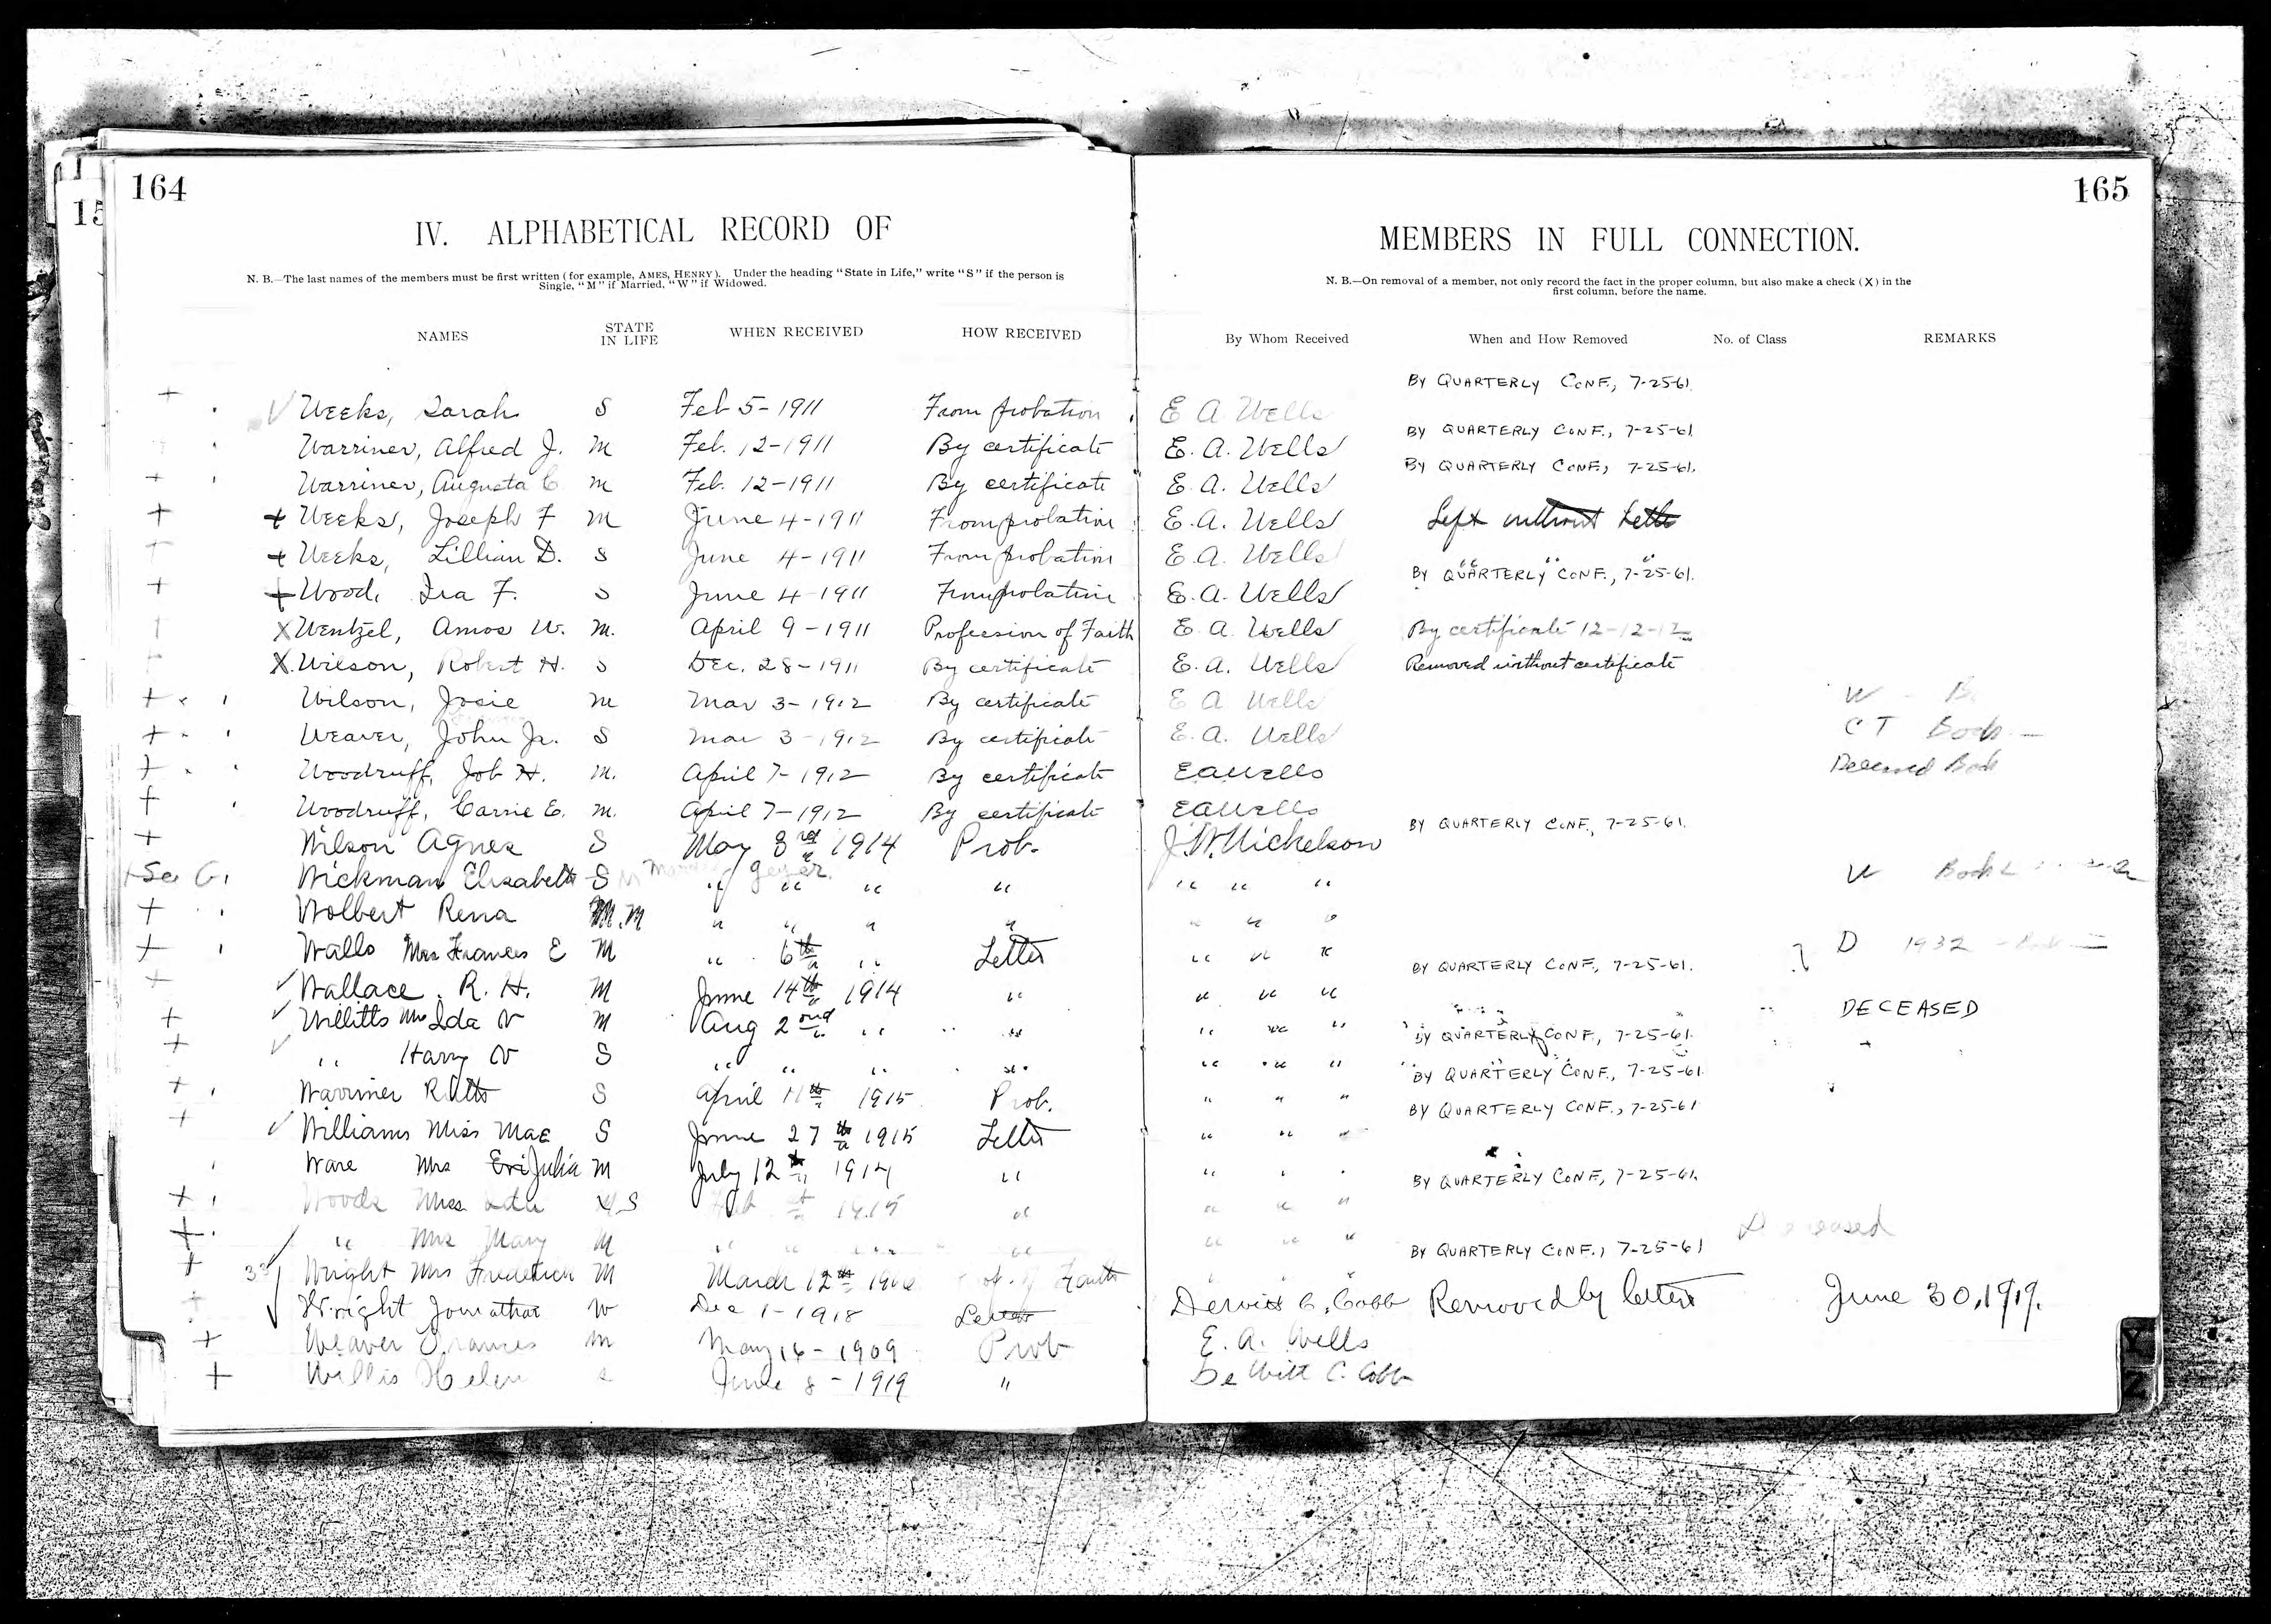 164
15
IV. ALPHABETICAL RECORD OF
N. B.—The last names of the members must be first written (for example, AMES, HENRY). Under the heading "State in Life," write "S" if the person is
Single, "M" if Married, "W" if Widowed.
NAMES STATE IN LIFE WHEN RECEIVED HOW RECEIVED
165
MEMBERS IN FULL CONNECTION.
N. B.—On removal of a member, not only record the fact in the proper column, but also make a check (X) in the
first column, before the name.
By Whom Received When and How Removed No. of Class REMARKS
+ ✓ Weeks, Sarah S Feb 5-1911 From probation E A Wells BY QUARTERLY CONF., 7-25-61.
Warriner, Alfred J. M Feb. 12-1911 By certificate E. A. Wells BY QUARTERLY CONF., 7-25-61
+ Warriner, Augusta C M Feb. 12-1911 By certificate E. A. Wells BY QUARTERLY CONF., 7-25-61.
+ + Weeks, Joseph F M June 4-1911 From probation E. A. Wells Left without letter
+ + Weeks, Lillian D. S June 4-1911 From probation E. A. Wells " " "
+ + Wood, Ira F. S June 4-1911 From probation E. A. Wells BY QUARTERLY CONF., 7-25-61.
+ X Wentzel, Amos W. M. April 9-1911 Profession of Faith E A Wells By certificate 12-12-12
+ X Wilson, Robert H. S Dec. 28-1911 By certificate E. A. Wells Removed without certificate
+ Wilson, Josie M Mar 3-1912 By certificate E A Wells W
+ Weaver, John Jr. S Mar 3-1912 By certificate E. A. Wells C T Book
+ Woodruff, Job H. M. April 7-1912 By certificate E A Wells Deceased Book
+ Woodruff, Carrie E. M. April 7-1912 By certificate E A Wells
+ Wilson Agnes S May 3rd 1914 Prob. J. W. Nickelson BY QUARTERLY CONF., 7-25-61.
See G. Wickman Elisabeth S Geyer " " " " " " " W Book
+ Wolbert Rena M " " " " " " "
+ Walls Mrs Frances E M " 6th " Letter " " " D 1932
+ ✓ Wallace R. H. M June 14th 1914 " " " " BY QUARTERLY CONF., 7-25-61.
+ ✓ Willitts Mrs Ida V M Aug 2nd " " " " " DECEASED
+ ✓ " Harry V S " " " " " " " BY QUARTERLY CONF., 7-25-61.
+ Warriner Ruth S April 11th 1915 Prob. " " " BY QUARTERLY CONF., 7-25-61.
+ ✓ Williams Miss Mae S June 27th 1915 Letter " " " BY QUARTERLY CONF., 7-25-61
Ware Mrs Julia M July 12th 1914 " "
+ Woods Miss S 1915 " " " " BY QUARTERLY CONF., 7-25-61.
+ " Mrs Mary M " " " " " " " Deceased
+ ✓ Wright Mrs Frederick M March 12th of Faith BY QUARTERLY CONF., 7-25-61
+ Wright Jonathan W Dec 1-1918 Letter Dewitt C. Cobb Removed by letter June 30, 1919.
+ Weaver Frances M May 16-1909 Prob E. A. Wells
+ Willis Helen June 8-1919 " De Witt C. Cobb
Y
Z